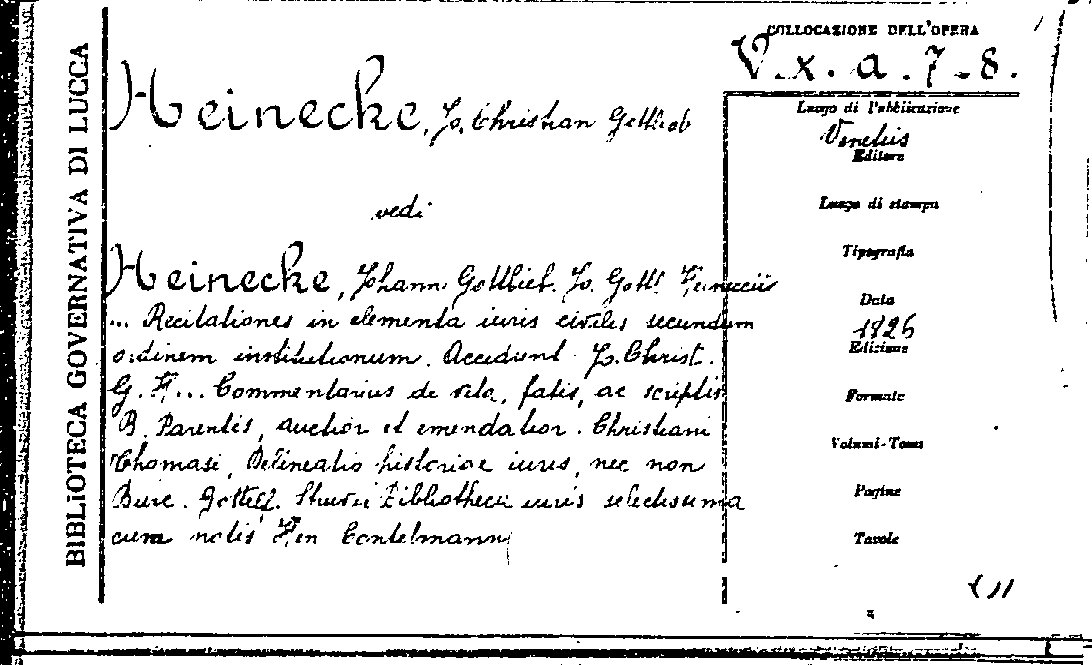 BIBLIOTECA GOVERNATIVA DI LUCCA
Heinecke, Jo. Christian Gottlieb
vedi
Heinecke, Johann Gottlieb. Jo. Gottl. Heineccii
... Recitationes in elementa iuris civiles secundum
ordinem institutionum. Accedunt Jo. Christ.
G. H... Commentarius de vita, fatis, ac scriptis
B. Parentis, auctior et emendatior. Christiani
Thomasi, Delineatio historiae iuris, nec non
Burc. Gottelf. Struvii Bibliotheca iuris selectissima
cum notis
COLLOCAZIONE DELL'OPERA
V.x.a.7-8.
Luogo di Pubblicazione
Venetiis
Editore
Luogo di stampa
Tipografia
Data
1826
Edizione
Formato
Volumi-Tomi
Pagine
Tavole